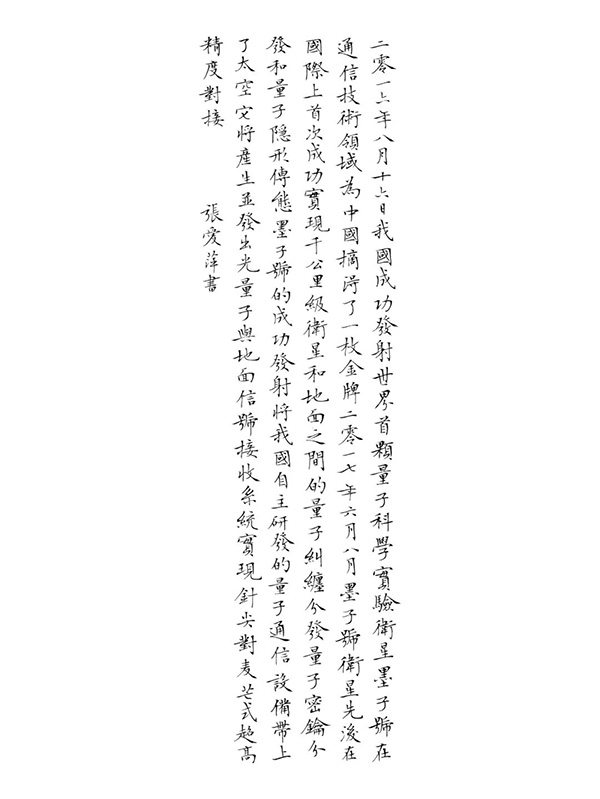 二零一六年八月十六日我國成功發射世界首顆量子科學實驗衛星墨子號在
通信技術領域為中國摘淂了一枚金牌二零一七年六月八月墨子號衛星先後在
國際上首次成功實現千公里級衛星和地面之間的量子糾纏分發量子密鑰分
發和量子隱形傳態墨子號的成功發射將我國自主研發的量子通信設備帶上
了太空它將產生並發出光量子與地面信號接收系統實現針尖對麦芒式超高
精度對接
張愛萍書